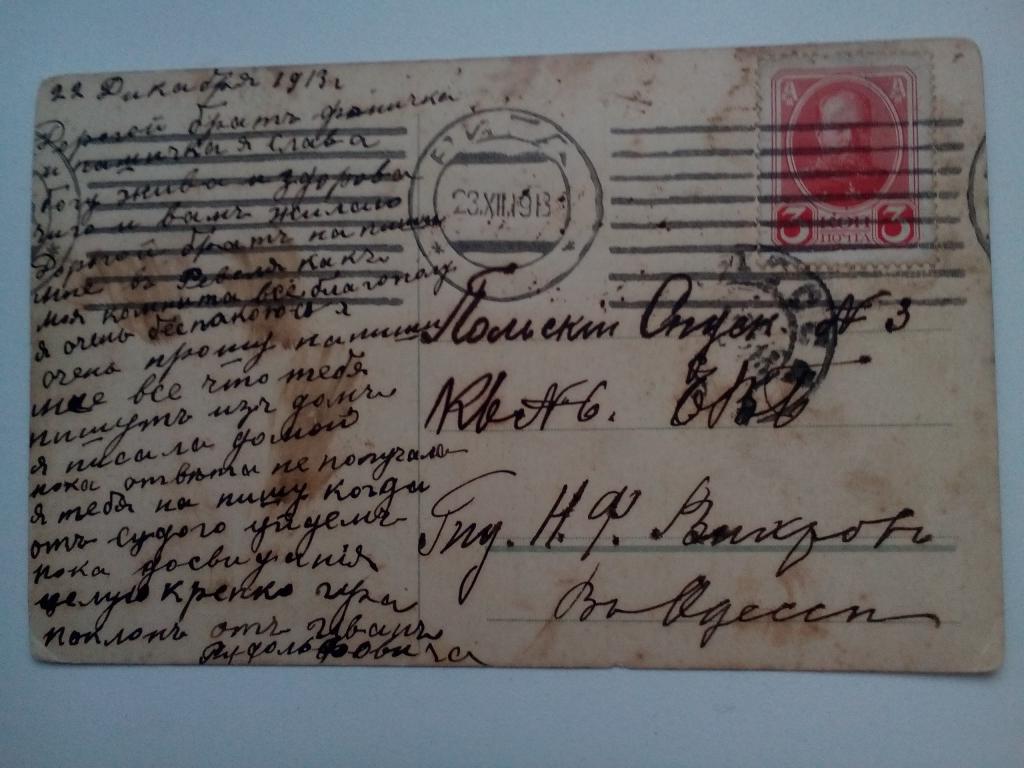 22 Декабря 1913 г
Дорогой братъ фоничка
и я слава
богу жива и здорова
чиго и вамъ жилаю
Дорогой братъ напиши
мне въ Ревеля какъ
моя комната все благополу
я очень беспакоюсь я
очень прошу напиши
мне все что тебя
пишутъ изъ домъ
я писала домой
пока отвѣта не получала
я тебя на пишу когда
отъ судого уидемъ
пока досвидания
целую крепко
поклонъ отъ Ивана
Рудольфовича
23.XII.1913
А А
3 КОП 3
ПОЧТА
Польскій Спуск. № 3
Кв № 6.
Гпд. Н. Ф. Вихровъ
Въ Одессп